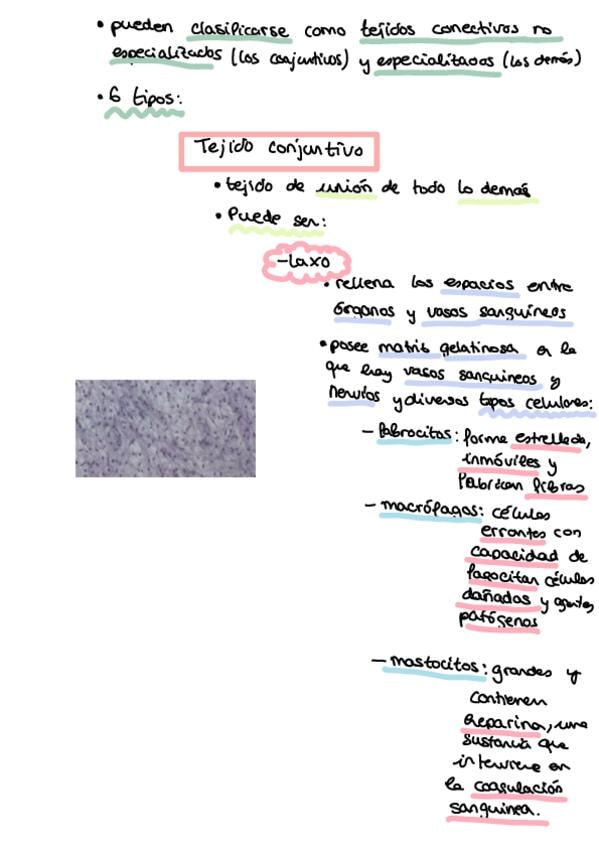 • pueden clasificarse como tejidos conectivos no
especializados (los conjuntivos) y especializados (los demás)
• 6 tipos:
Tejido conjuntivo
• tejido de unión de todo lo demás
• Puede ser:
-Laxo
• rellena los espacios entre
órganos y vasos sanguíneos
• posee matriz gelatinosa en la
que hay vasos sanguineos y
nervios y diversos tipos celulares:
- fibrocitos: forma estrellada,
inmóviles y
fabrican fibras
- macrófagos: células
errantes con
capacidad de
fagocitar células
dañadas y agentes
patógenos
- mastocitos: grandes y
contienen
heparina, una
sustancia que
interviene en
la coagulación
sanguínea.